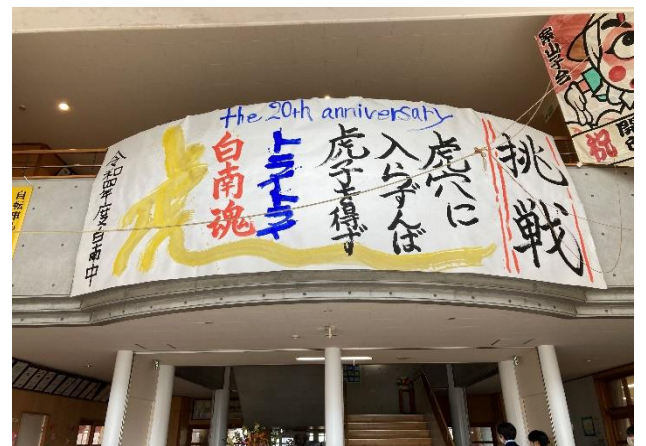 the 20th anniversary
挑戦
虎穴に
入らずんば
虎子を得ず
白南魂
虎
令和四年度白南中
祝